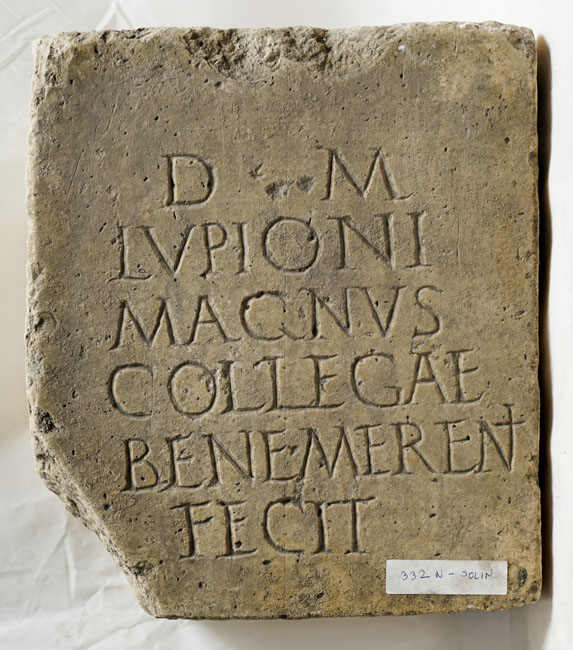 D M
LVPIONI
MAGNVS
COLLEGAE
BENEMERENT
FECIT
332 N - SOLIN